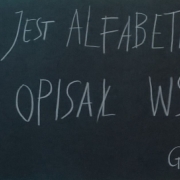 JEST ALFABET
OPISAŁ WS
G